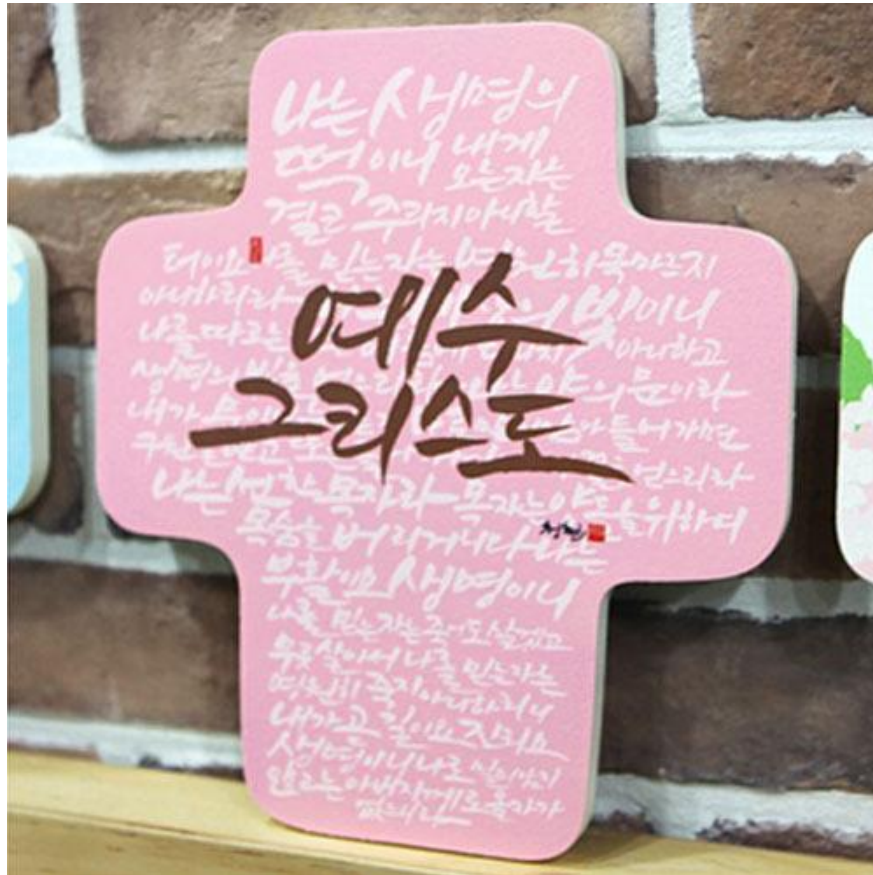 나는 생명의
떡이니 내게
오는자는
결코 주리지아니할
터이요 나를 믿는자는 영원히목마르지
아니하리라 빛이니
나를따르는 아니하고
생명의 양의 문이라
내가 들어가면
얻으리라
예수
그리스도
나는선한목자라 목자는양들을위하여
목숨을 버리거니와 나는
부활이요 생명이니
나를 믿는자는죽어도살겠고
무릇살아서 나를 믿는자는
영원히 죽지아니하리니
내가곧길이요 진리요
생명이니나로 말미암지
않고는아버지께로올자가
없느니라